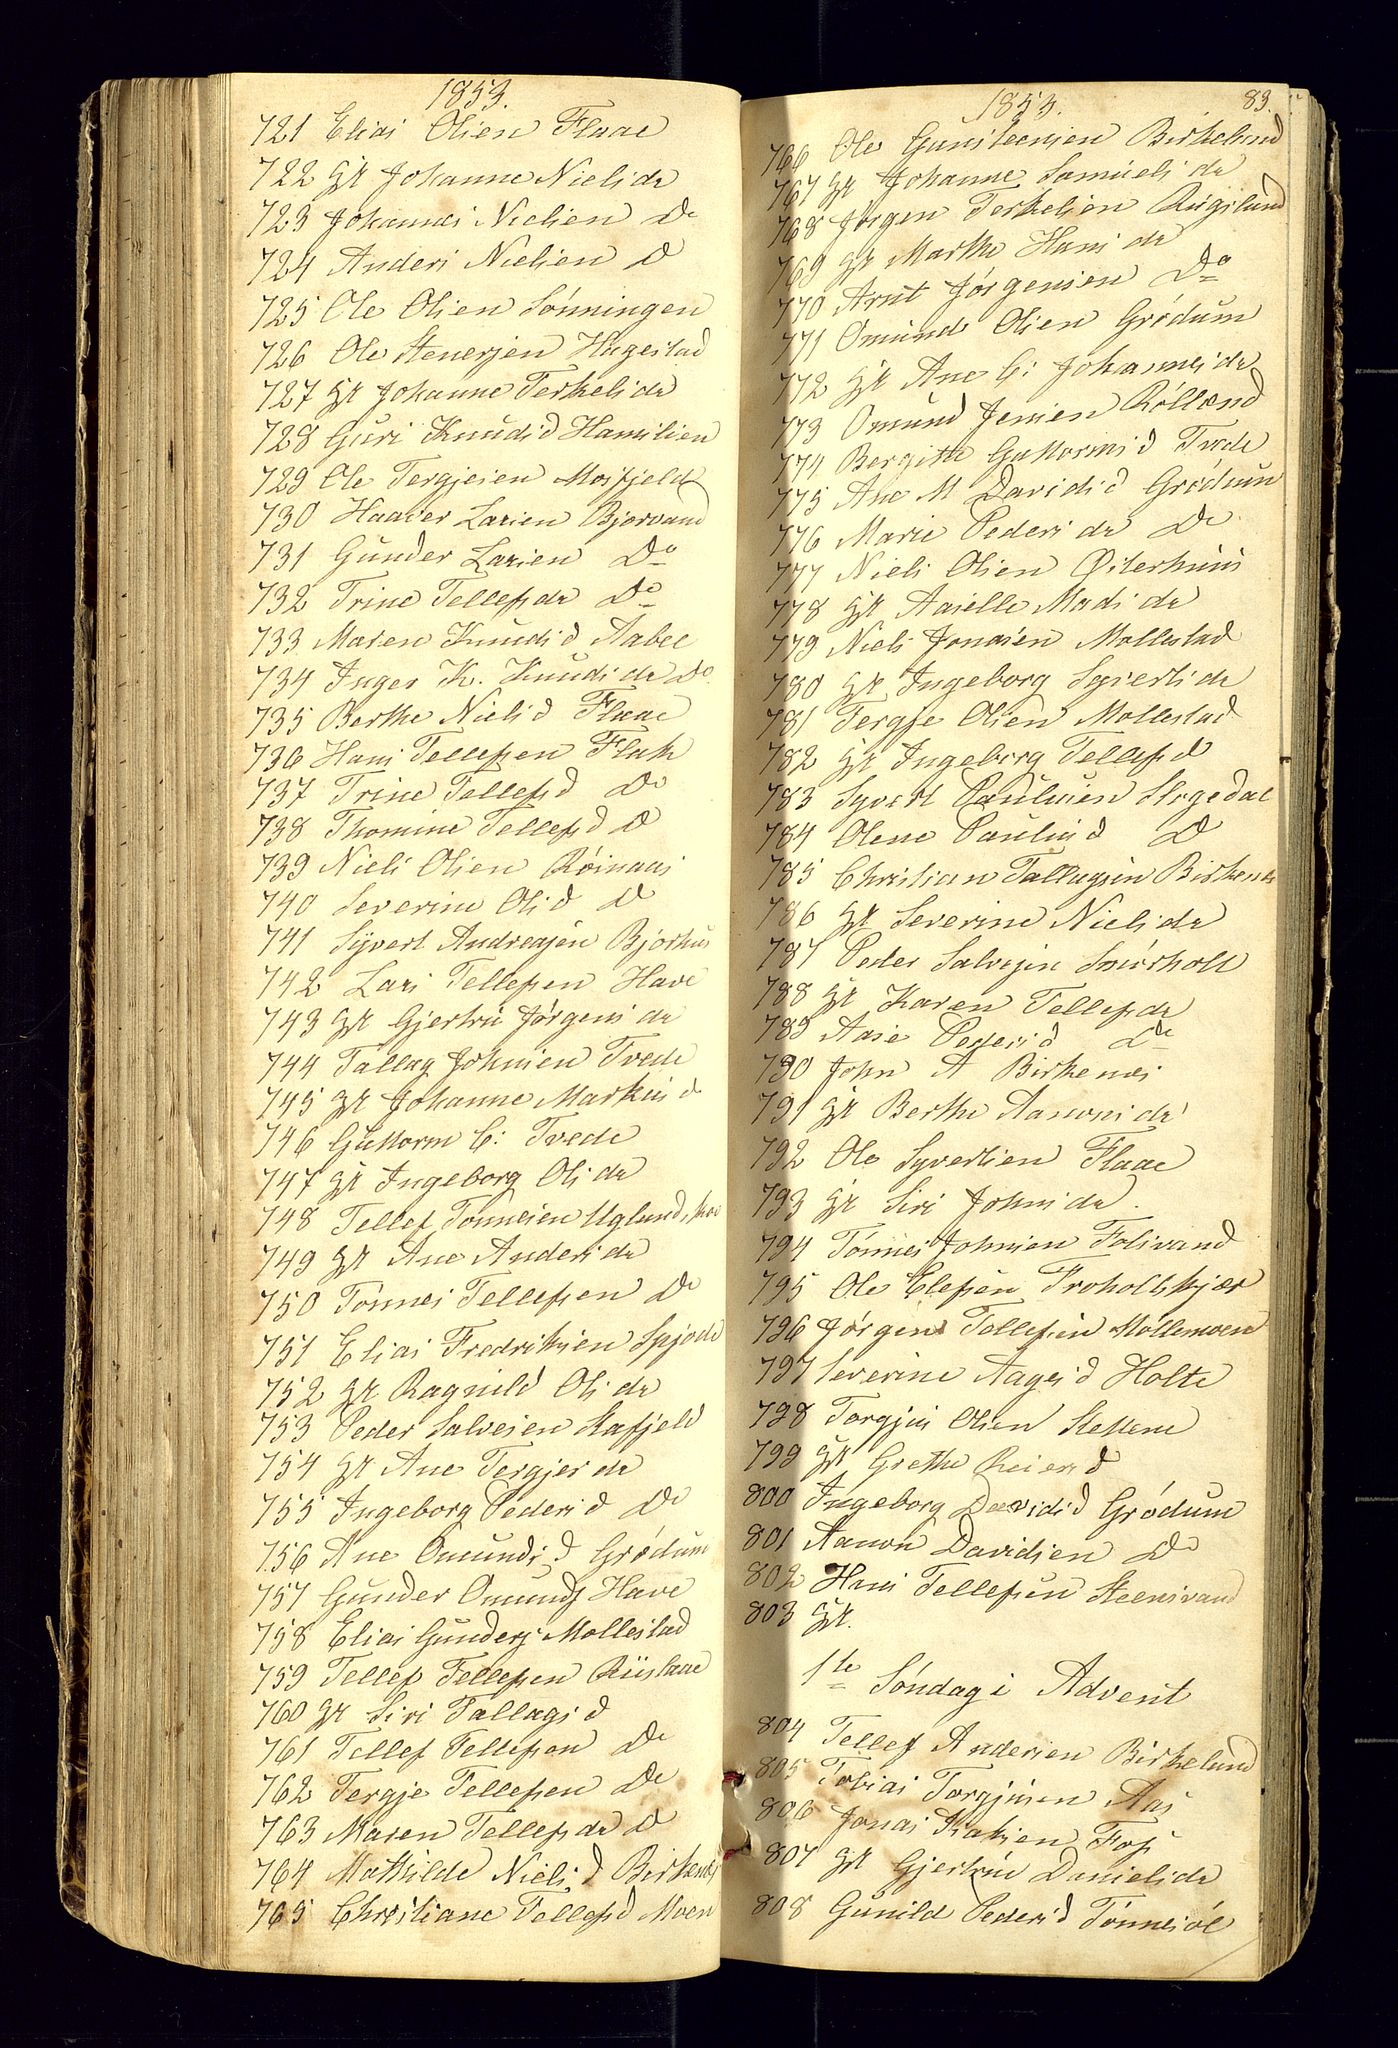 1853.
721 Elias Olsen Flaae
722 Gt Johanne Nielsdr
723 Johannes Nielsen Do
724 Anders Nielsen D
725 Ole Olsen Lønningen
726 Ole Stenersen Hægestad
727 Gt Johanne Terkelsdr
728 Guri Knudsd Hamslien
729 Ole Tergjesen Mosfjeld
730 Haaver Larsen Bjorvand
731 Gunder Larsen Do
732 Trine Tellefsdr Do
733 Maren Knudsd Aabel
734 Inger K. Knudsdr Do
735 Berthe Nielsd Flaae
736 Hans Tellefsen Flak
737 Trine Tellefsd Do
738 Thomine Tellefsd D
739 Niels Olsen Røinaas
740 Severine Olsd D
741 Syvert Andreasen Bjorhus
742 Lars Tellefsen Have
743 Gt Gjertru Jørgensdr
744 Tallag Johnsen Tvede
745 Gt Johanne Markusd
746 Guttorm C: Tvede
747 Gt Ingeborg Olsdr
748 Tellef Tønnesen Uglands
749 Gt Ane Andersdr
750 Tønnes Tellefsen Do
751 Elias Fredriksen Spjode
752 Gt Ragnild Olsdr
753 Peder Salvesen Skafjeld
754 Gt Ane Tergjesdr
755 Ingeborg Pedersd Do
756 Ane Omundsd Grødum
757 Gunder Omunds Have
758 Elias Gunders Mollestad
759 Tellef Tellefsen Riislaae
760 Gt Siri Tallagsd
761 Tellef Tellefsen Do
762 Tergje Tellefsen Do
763 Maren Tellefsdr D
764 Mathilde Nielsd Birkenes
765 Christiane Tellefsd Moen
1853. 83.
766 Ole Gunsteensen Birkeland
767 Gt Johanne Samuelsdr
768 Jørgen Terkelsen Rugslund
769 Gt Marthe Hansdr
770 Arnt Jørgensen Do
771 Omund Olsen Grødum
772 Gt Ane C: Johannesdr
773 Omund Jensen Rølland
774 Bergitte Guttormsd Tvede
775 Ane M Davidsd Grødum
776 Marie Pedersdr Do
777 Niels Olsen Østerhuus
778 Gt Aaselle Madsdr
779 Niels Jonasen Mollestad
780 Gt Ingeborg Syvertsdr
781 Tergje Olsen Mollestad
782 Gt Ingeborg Tellefsd
783 Syvert Paulusen Skogedal
784 Olene Paulusd D
785 Christian Tallagsen Birkenes
786 Gt Severine Nielsdr
787 Peder Salvesen Sniorholt
788 Gt Karen Tellefsdr
789 Aase Pedersd Do
790 John A Birkenes
791 Gt Berthe Aanonsdr
792 Ole Syvertsen Flaae
793 Gt Siri Johnsdr.
794 Tønnes Johnsen Folivand
795 Ole Elefsen Froholtskjær
796 Jørgen Tellefsen Møllemoen
797 Severine Aagesd Holte
798 Torgjus Olsen Stellene
799 Gt Grethe Reiersd
800 Ingeborg Davidsd Grødum
801 Aanon Davidsen Do
802 Hans Tellefsen Steensvand
803 Gt.
1te Søndag i Advent
804 Tellef Andersen Birkeland
805 Tobias Torgjusen Aas
806 Jonas Kahsen Foss
807 Gt Gjertrue Danielsdr
808 Gunild Pedersd Tønnesøl